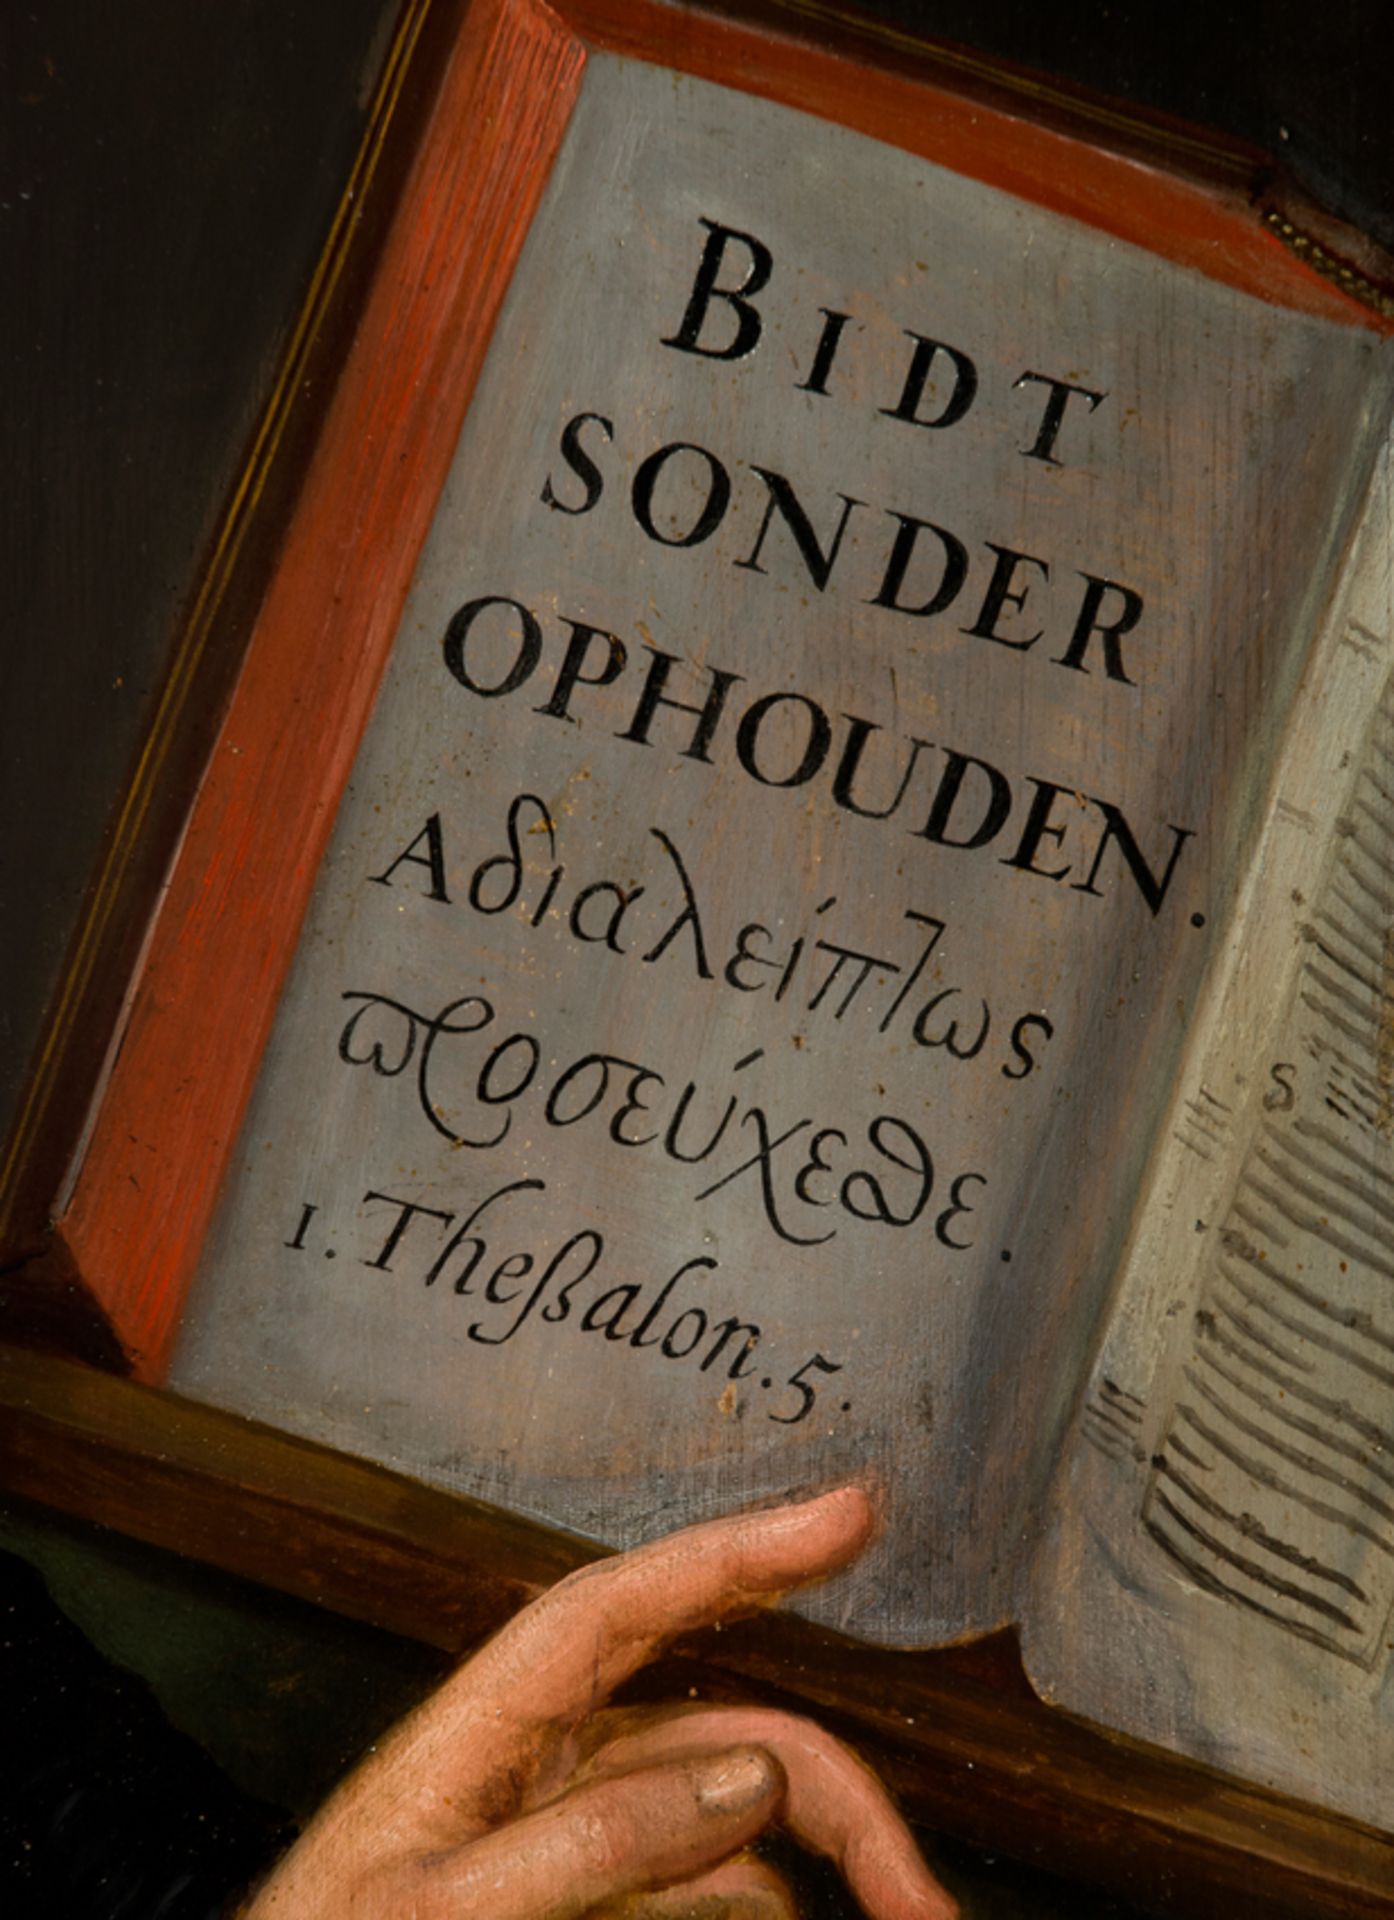 BIDT
SONDER
OPHOUDEN.
Αδιαλείπτως
ϖροσεύχεϑε.
1. Theßalon. 5.
S